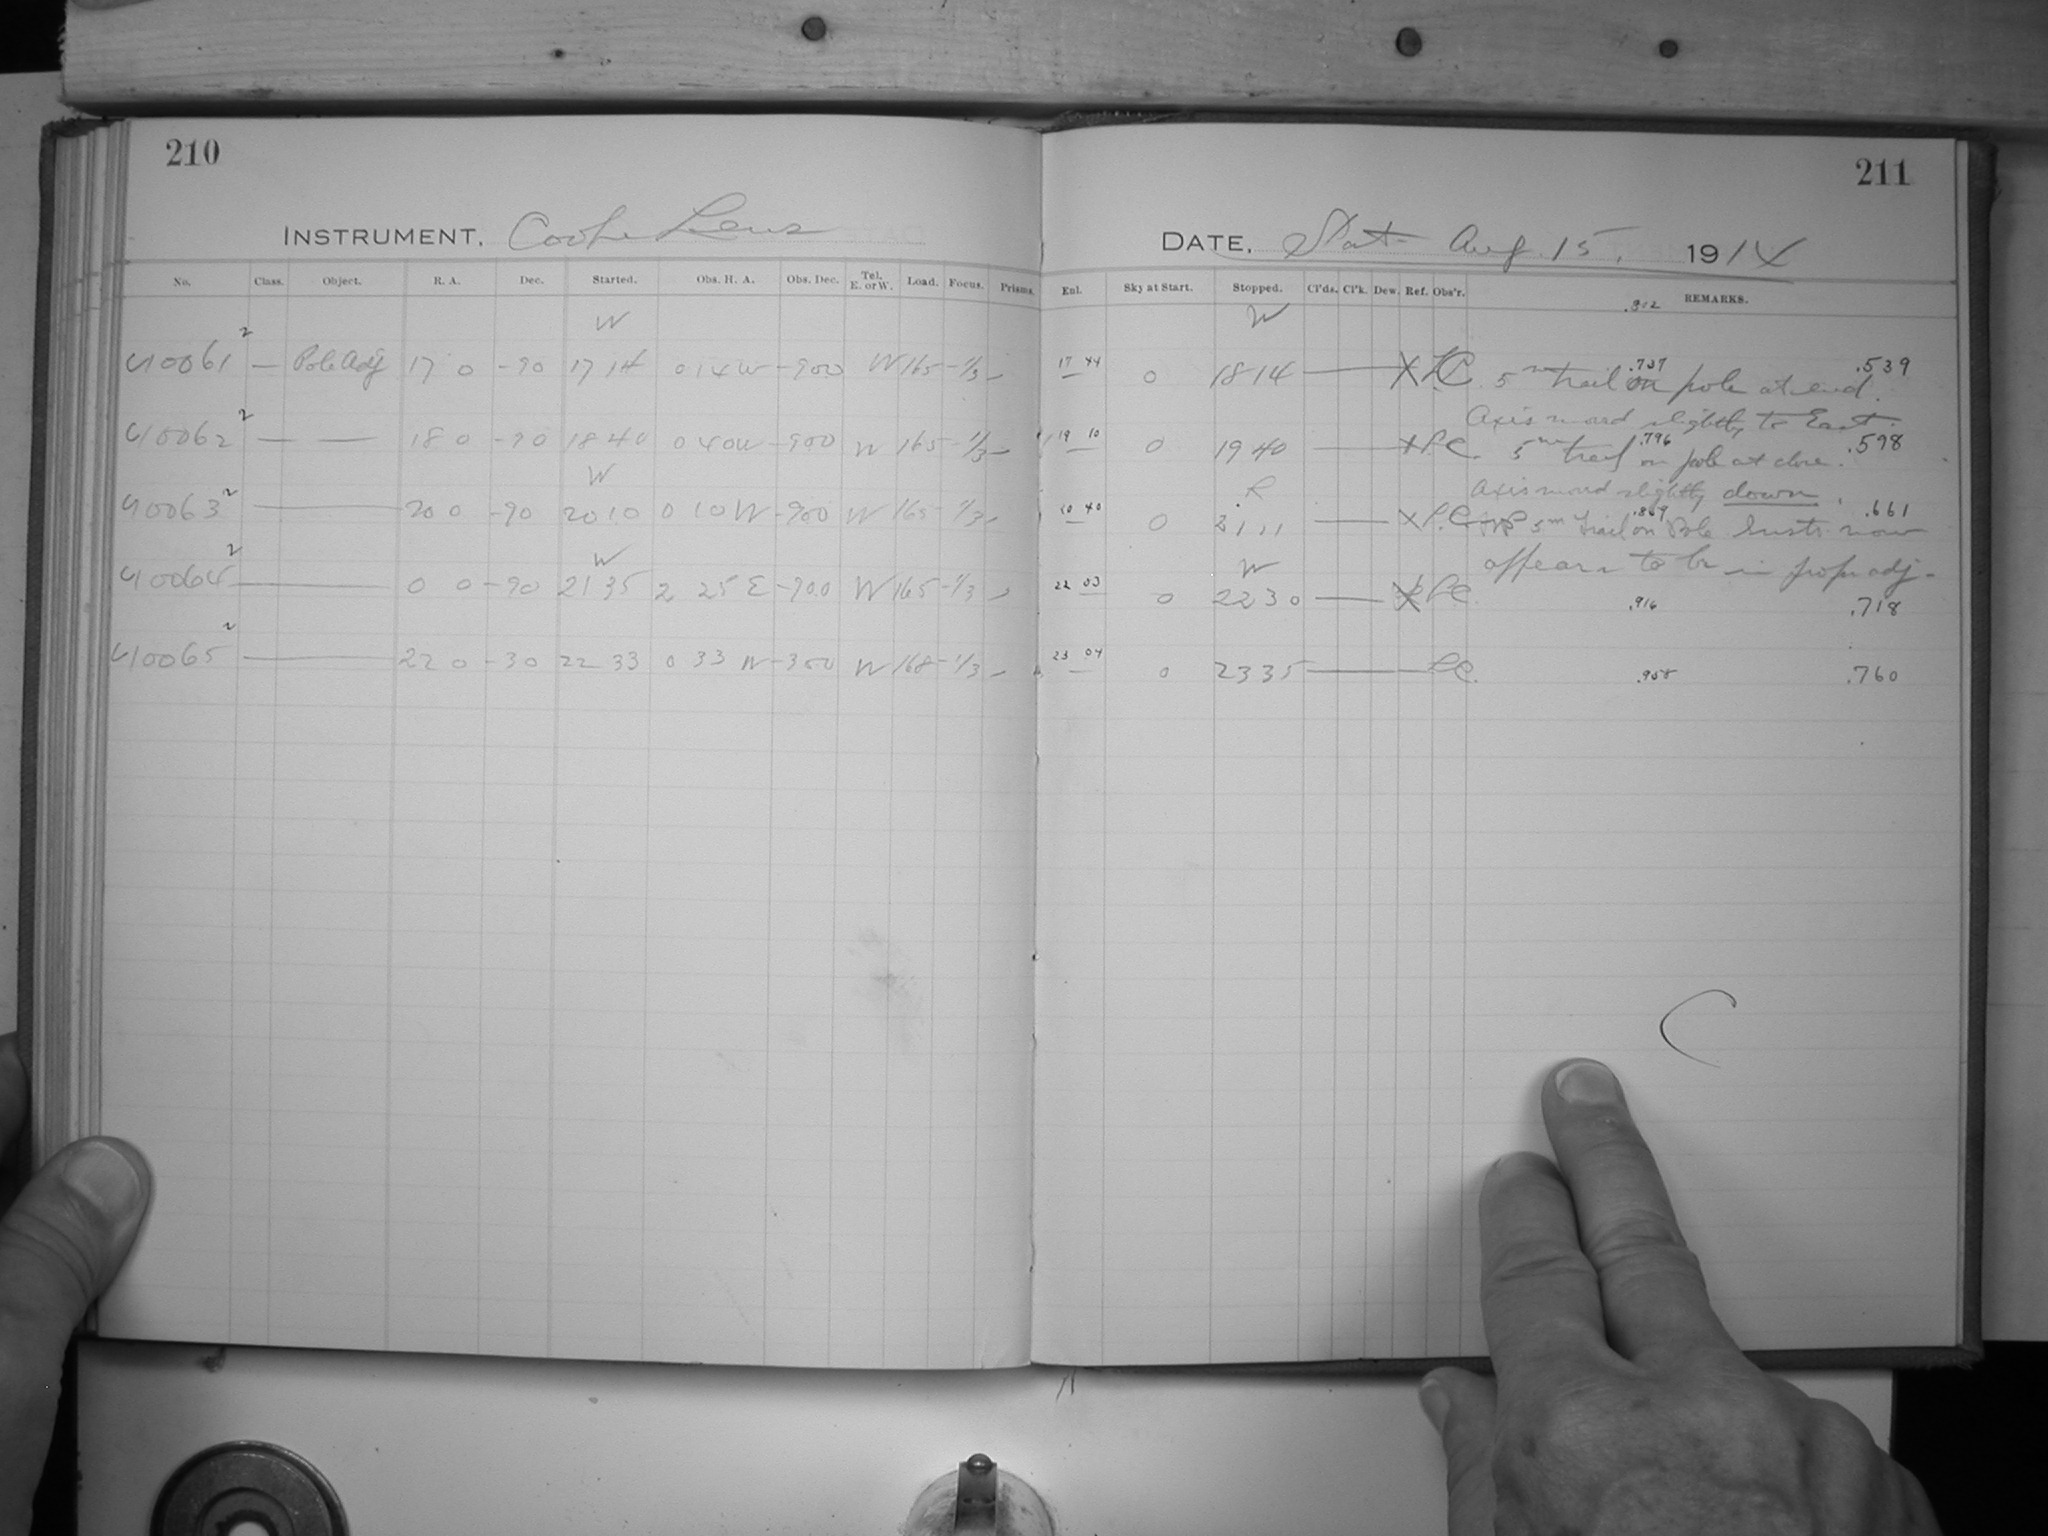 210
211
INSTRUMENT, Cooke Lens
DATE, Sat. Aug. 15, 1914
No. Class. Object. R. A. Dec. Started. Obs. H. A. Obs. Dec. Tel. E. or W. Load. Focus. Prisms.
Enl. Sky at Start. Stopped. Cl'ds. Cl'k. Dew. Ref. Obs'r. REMARKS.
W W
10061 2 — Pole adj 17 0 -90 17 14 0 14 W -90.0 W 165 -1/3 — 17 44 0 18 14 — X 5m trail on pole at end. .737 .539
Axis moved slightly to East.
10062 2 — — 18 0 -90 18 40 0 40 W -90.0 W 165 -1/3 — 19 10 0 19 40 — X 5m trail on pole at close. .796 .598
W R Axis moved slightly down.
10063 2 — 20 0 -90 20 10 0 10 W -90.0 W 165 -1/3 — 0 21 11 — X 5m trail on Pole now .661
W W appears to be in proper adj-
10064 2 — 0 0 -90 21 35 2 25 E -90.0 W 165 -1/3 — 22 03 0 22 30 — X .916 .718
10065 2 — 22 0 -30 22 33 0 33 W -30.0 W 168 -1/3 — 23 04 0 23 35 — .958 .760